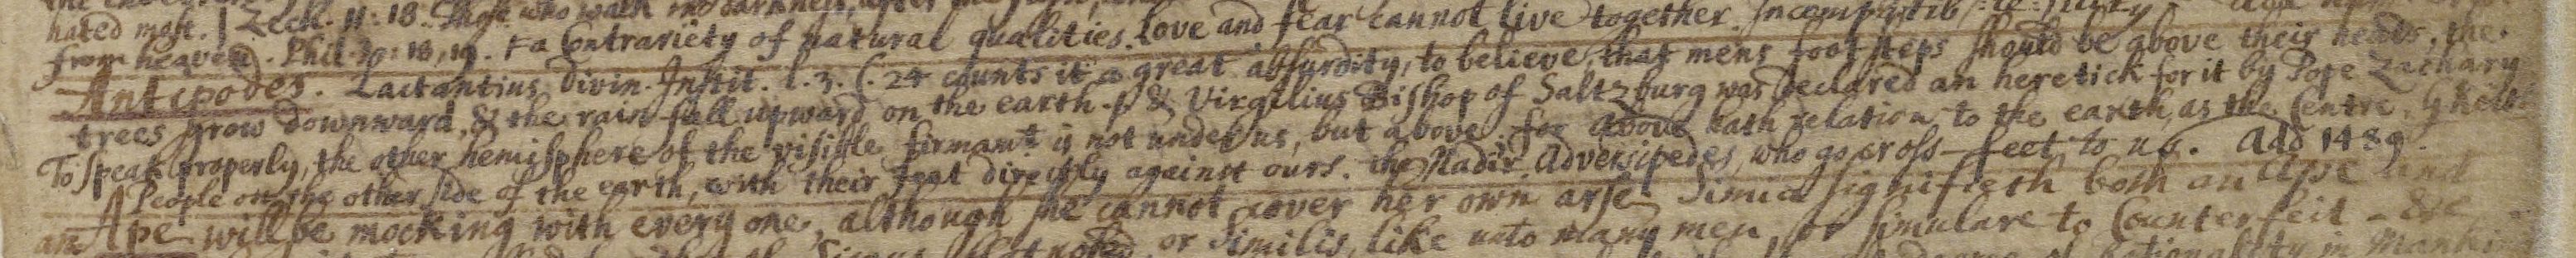 hated most. | Zech. 11: 18. Those who walk in darkness, after the
from heaven. Phil. 3: 18, 19. + a Contrariety of natural qualities. Love and fear cannot live together. Incompatib
Antipodes. Lactantius Divin. Instit. l. 3. C. 24 counts it a great absurdity, to believe, that mens footsteps should be above their heads, the
trees grow downward, & the rain fall upward on the earth - p & Virgilius Bishop of Saltzburg was declared an heretick for it by Pope Zachary
To speak properly, the other hemisphere of the visible firmamt is not under us, but above. for above hath relation to the earth, as the Centre,
People on the other side of the earth, with their feet directly against ours. the Nadir. Adversipedes, who go cross-feet to us. Add 1489.
an Ape will be mocking with every one, although she cannot cover her own arse Simia signifieth both an Ape and
or Similis, like unto many men, or simulare to Counterfeit - &c
rationality in Mankind